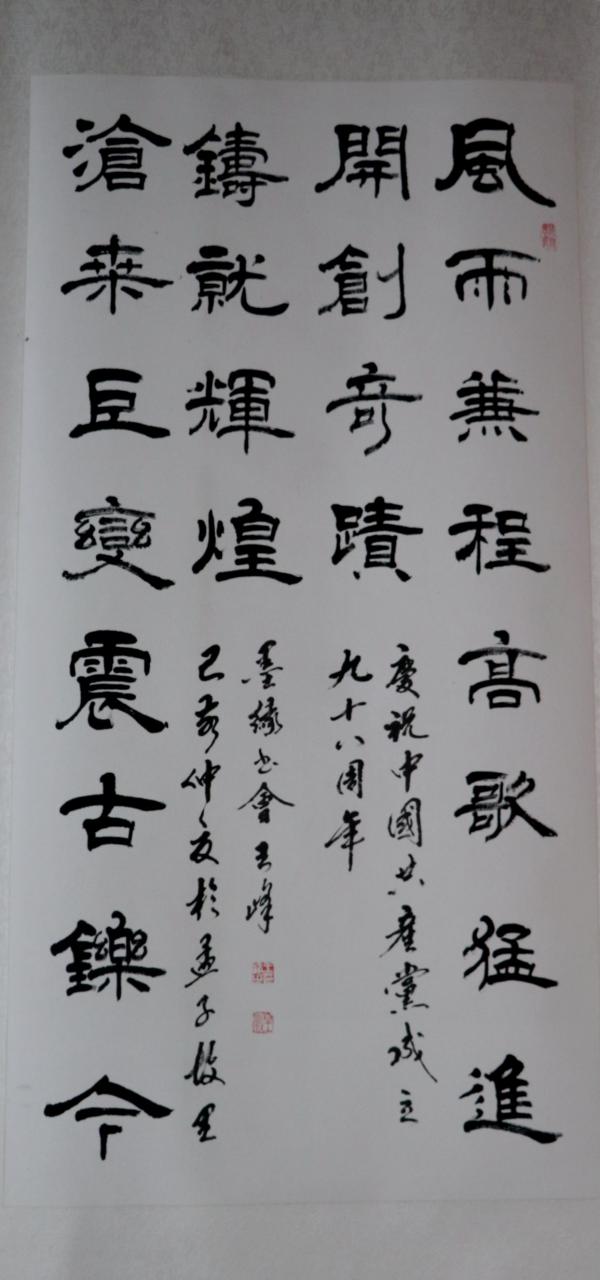 風雨兼程髙歌猛進
開創奇蹟
慶祝中國共產黨成立
九十八周年
滄桒巨變震古鑠今
鑄就輝煌
墨緣书會王峰
己亥仲夏於孟子故里